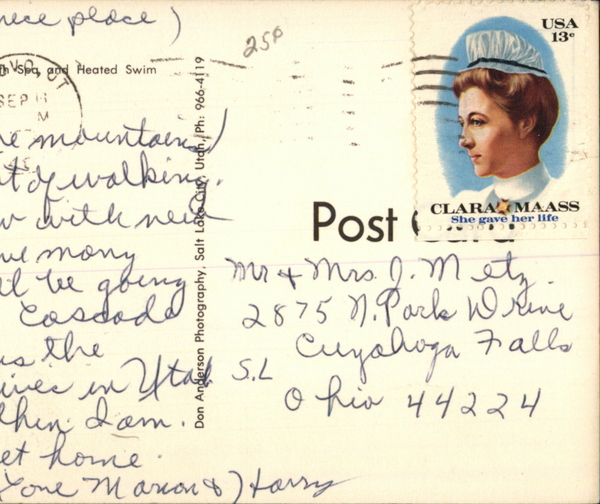 nice place)
25¢
USA
13c
Spa, and Heated Swim
VO, UT
SEP
M
the mountains)
of walking.
with new
many
be going
Cascade
is the
lives in Utah S.L
I am.
home.
Love Marion &) Harry
Don Anderson Photography, Salt Lake City, Utah, Ph: 966-4119
CLARA MAASS
She gave her life
Post Card
Mr & Mrs. J. Metz.
2875 N. Park Drive
Cuyahoga Falls
Ohio 44224